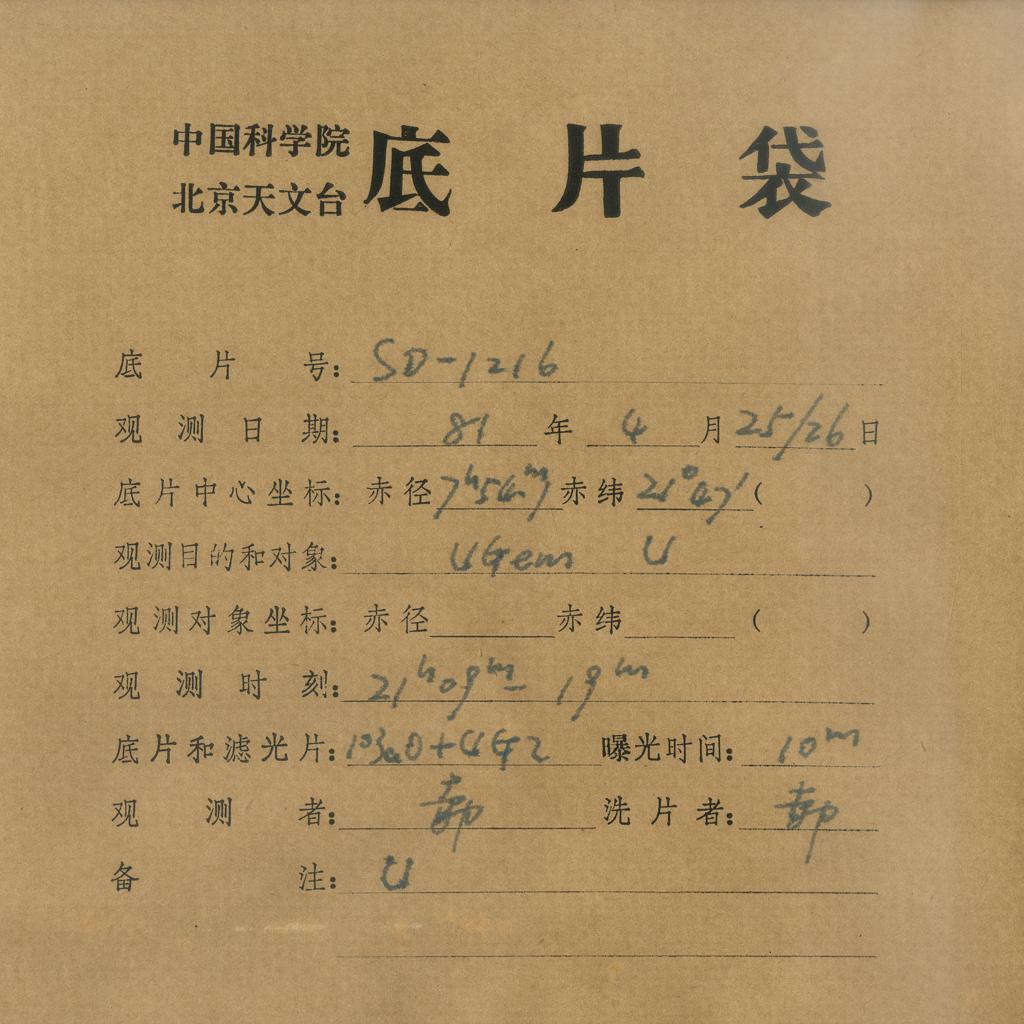 中国科学院
北京天文台
底片袋
底片号：SD-1216
观测日期：81年4月25/26日
底片中心坐标：赤径7h54m.7赤纬21°47′（ ）
观测目的和对象：UGem U
观测对象坐标：赤径 赤纬 （ ）
观测时刻：21h09m-19m
底片和滤光片：103aO+UG2 曝光时间：10m
观测者： 洗片者：
备注：U